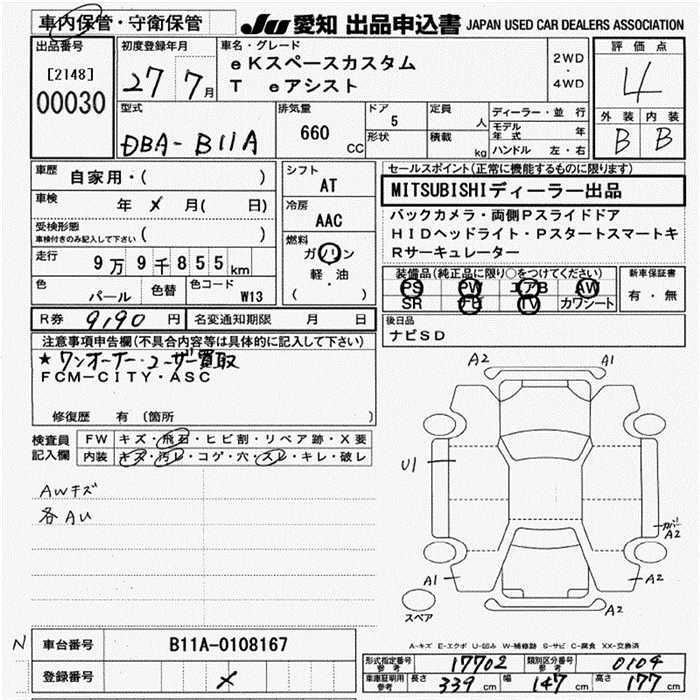 車内保管・守衛保管
JU 愛知 出品申込書 JAPAN USED CAR DEALERS ASSOCIATION
出品番号
[2148]
00030
初度登録年月
27年7月
車名・グレード
eKスペースカスタム
T eアシスト
2WD
・
4WD
評価点
4
外装 内装
B B
型式
DBA-B11A
排気量
660 CC
ドア
5
形状
定員
人
積載
kg
ディーラー・並行
モデル年式 年
ハンドル 左・右
車歴
自家用・( )
車検
年 メ 月( 日)
受検形態
車検付きのみ記入して下さい ( )
走行
9万9千855km
色
パール
色替
色コード
W13
シフト
AT
冷房
AAC
燃料
ガソリン
軽・油
( )
セールスポイント(正常に機能するものに限ります)
MITSUBISHIディーラー出品
バックカメラ・両側Pスライドドア
HIDヘッドライト・Pスタートスマートキ
Rサーキュレーター
装備品(純正品に限り○をつけてください)
PS PW エアB AW
SR ナビ TV カワシート
新車保証書
有・無
後日品
ナビSD
R券 9190 円
名変通知期限 月 日
注意事項申告欄(不具合内容等は具体的に記入して下さい)
★ワンオーナー・ユーザー買取
FCM-CITY・ASC
修復歴 有 〔箇所 〕
検査員記入欄
FW キズ・飛石・ヒビ割・リペア跡・X要
内装 キズ・汚レ・コゲ・穴・スレ・キレ・破レ
AWキズ
各AU
A2 A1
U1
カバーA2
A1 A2
A2
スペア
A-キズ E-エクボ U-凹み W-補修跡 S-サビ C-腐食 XX-交換済
N
車台番号 B11A-0108167
登録番号 メ
形式指定番号参考 17702 類別区分番号参考 0104
車庫証明用参考 長さ 339 cm 幅 147 cm 高さ 177 cm